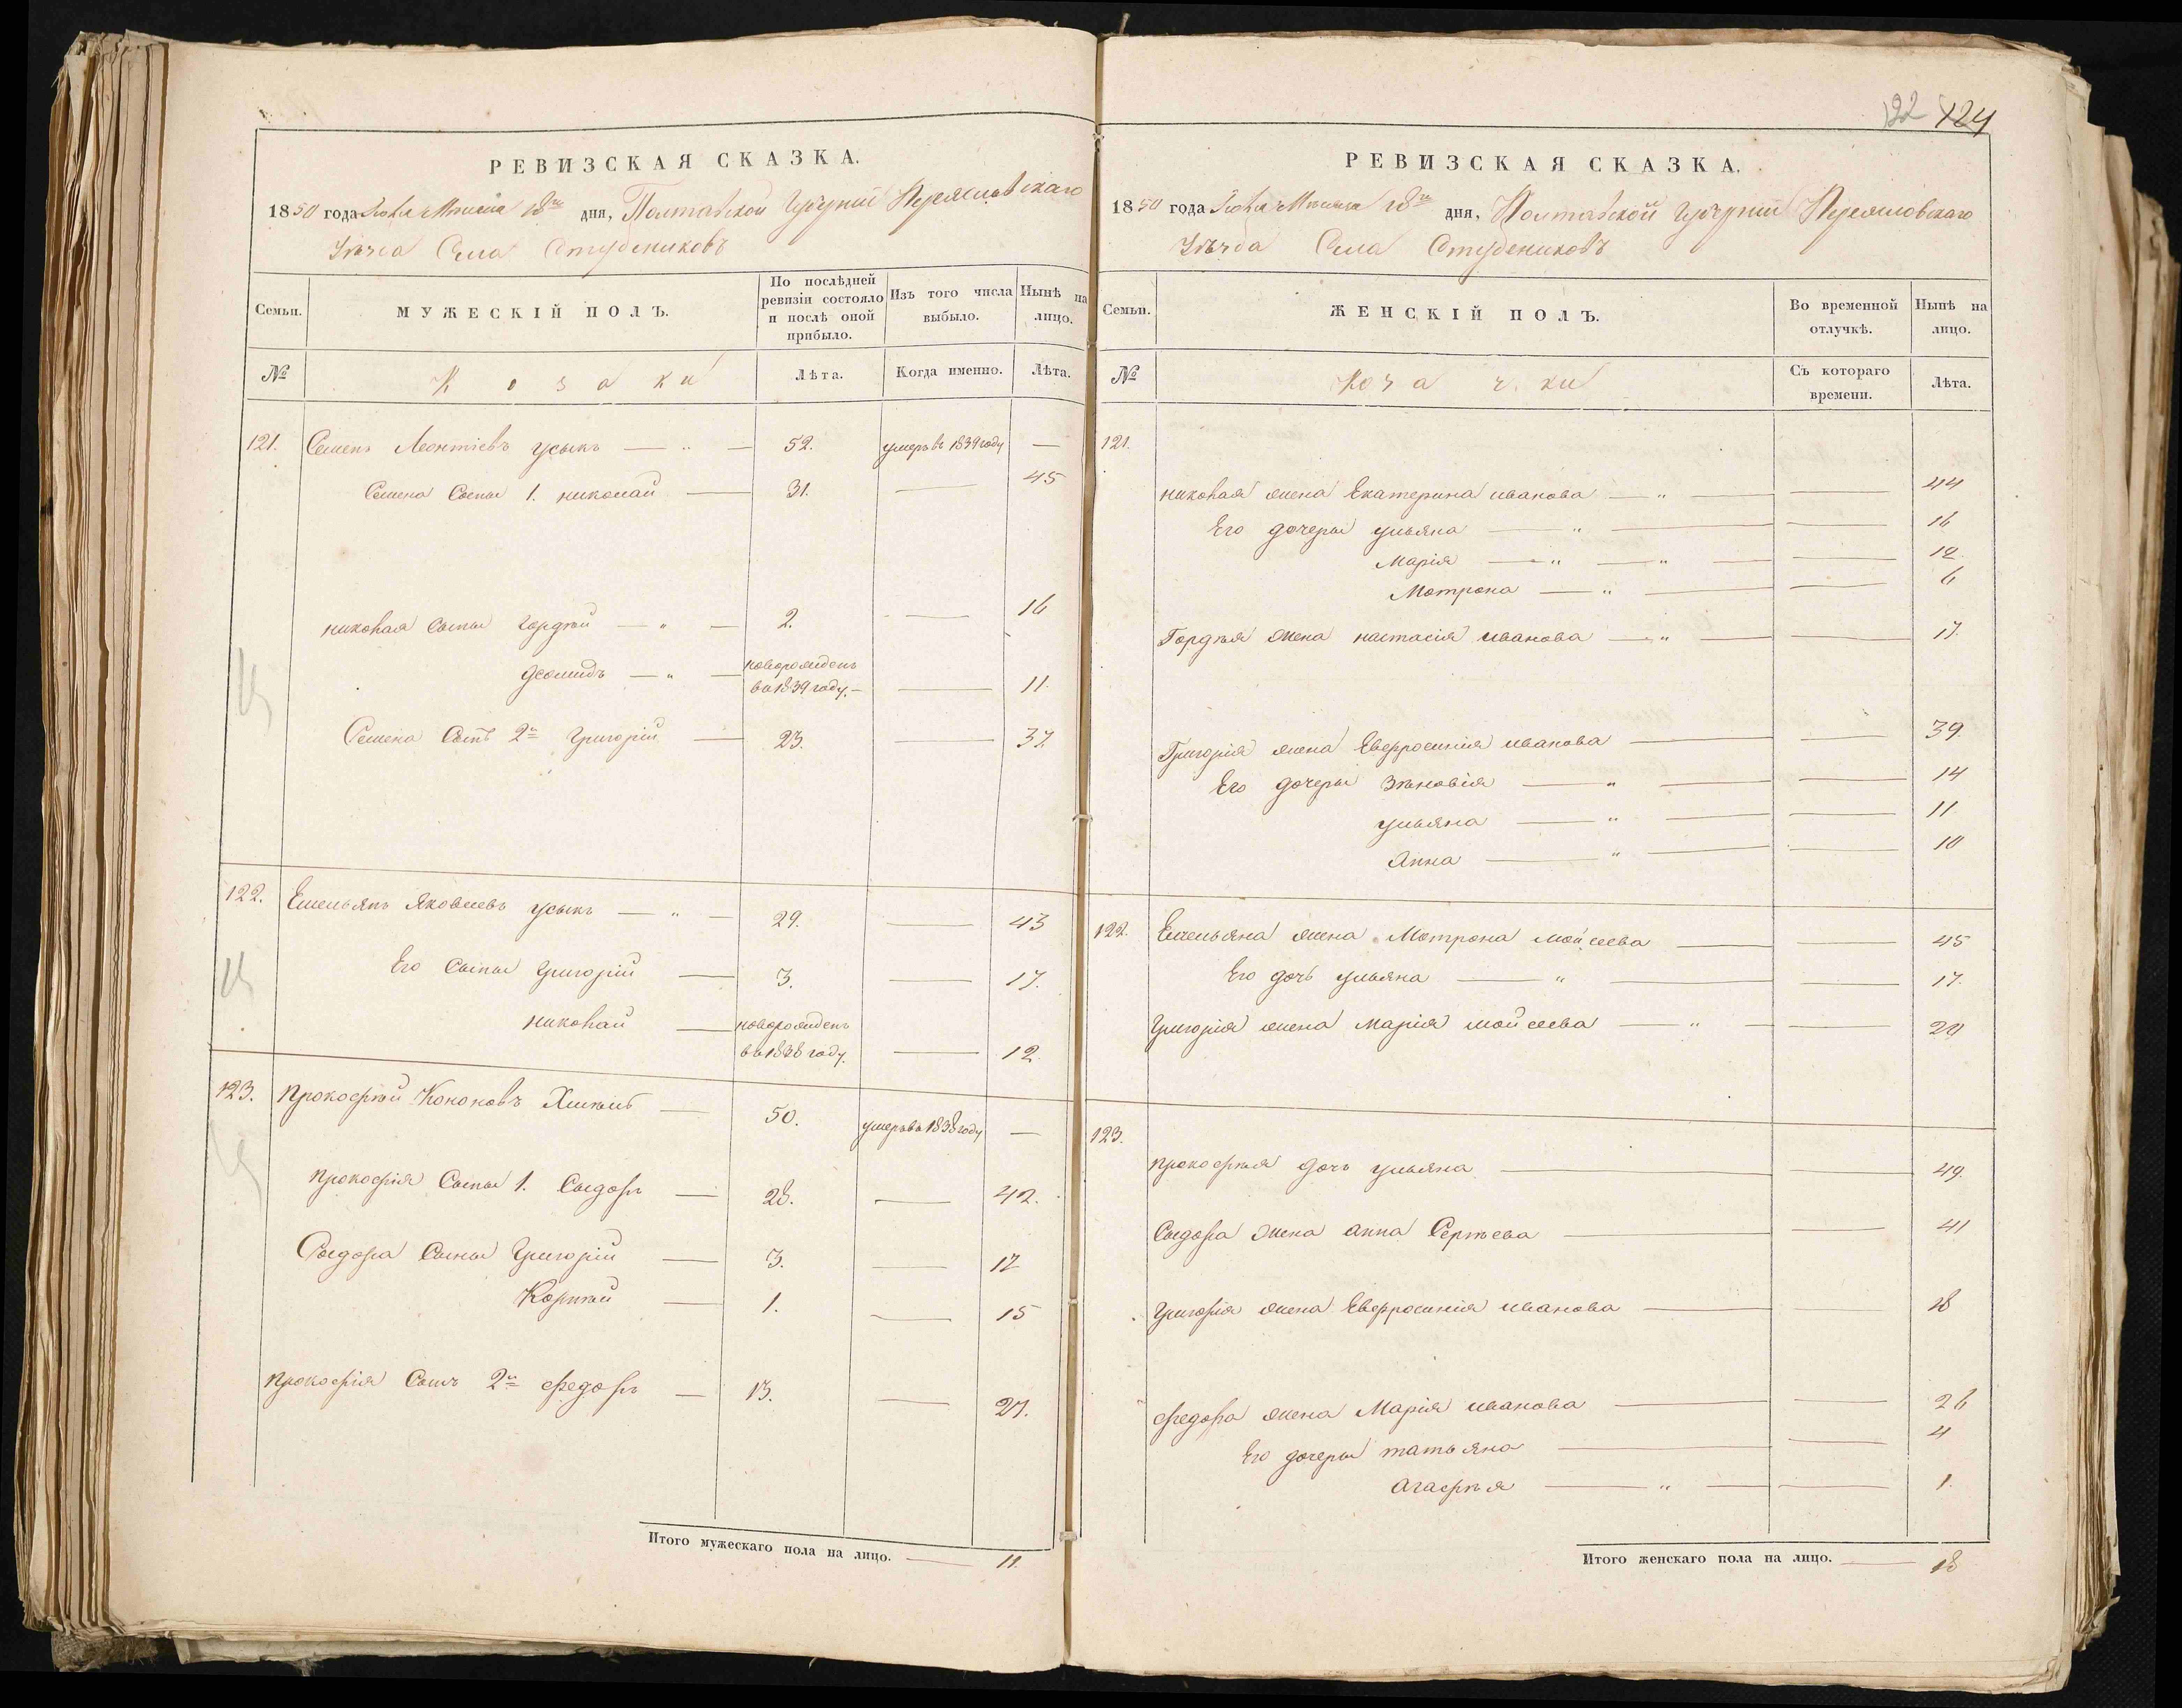 122 124
РЕВИЗСКАЯ СКАЗКА.
1850 года Іюня Мѣсяца 18го дня, Полтавской Губерніи Переяславскаго
Уѣзда Села Студениковъ
Семьи.
МУЖЕСКІЙ ПОЛЪ.
По послѣдней ревизіи состояло и послѣ оной прибыло.
Изъ того числа выбыло.
Нынѣ на лицо.
№
Козаки
Лѣта.
Когда именно.
Лѣта.
121. Семенъ Леонтіевъ Усыкъ — " — 52. умеръ въ 1839 году —
Семена Сыны 1. николай — 31. — 45
николая Сыны Гордѣй — " — 2. — 16
Деомидъ — " — новорожденъ
въ 1839 году. — — 11.
Семена Сынъ 2й Григорій — 23. — 37
122. Емельянъ Яковлевъ Усыкъ — " — 29. — 43
Его Сыны Григорій — 3. — 17.
николай — новорожденъ
въ 1838 году. — 12.
123. Прокофій Кононовъ — 50. умеръ въ 1838 году —
Прокофія Сыны 1. Сыдоръ — 28. — 42.
Сыдора Сыны Григорій — 3. — 17
Корнѣй — 1. — 15
Прокофія Сынъ 2й Федоръ — 13. — 27.
Итого мужескаго пола на лицо. — 11.
РЕВИЗСКАЯ СКАЗКА.
1850 года Іюня Мѣсяца 18го дня, Полтавской Губерніи Переяславскаго
Уѣзда Села Студениковъ
Семьи.
ЖЕНСКІЙ ПОЛЪ.
Во временной отлучкѣ.
Нынѣ на лицо.
№
Козачки
Съ котораго времени.
Лѣта.
121.
николая жена Екатерина иванова — " — — 44
Его дочеры ульяна — " — — 16
Марія — " — " — — 12.
Мотрона — " — — 6
Гордѣя жена настасія иванова — " — — 17.
Григорія жена Евфросинія иванова — — 39.
Его дочеры Зѣновія — " — — 14
ульяна — " — — 11
Анна — " — — 10
122. Емельяна жена Мотрона мойсеева — — 45
Его дочь ульяна — " — — 17.
Григорія жена Марія мойсеева — " — — 20
123.
Прокофія дочь ульяна — — 49.
Сыдора жена анна Сергѣева — — 41
Григорія жена Евфросинія иванова — — 18
Федора жена Марія иванова — — 26
Его дочеры татьяна — — 4
Агафія — " — — 1.
Итого женскаго пола на лицо. — 18